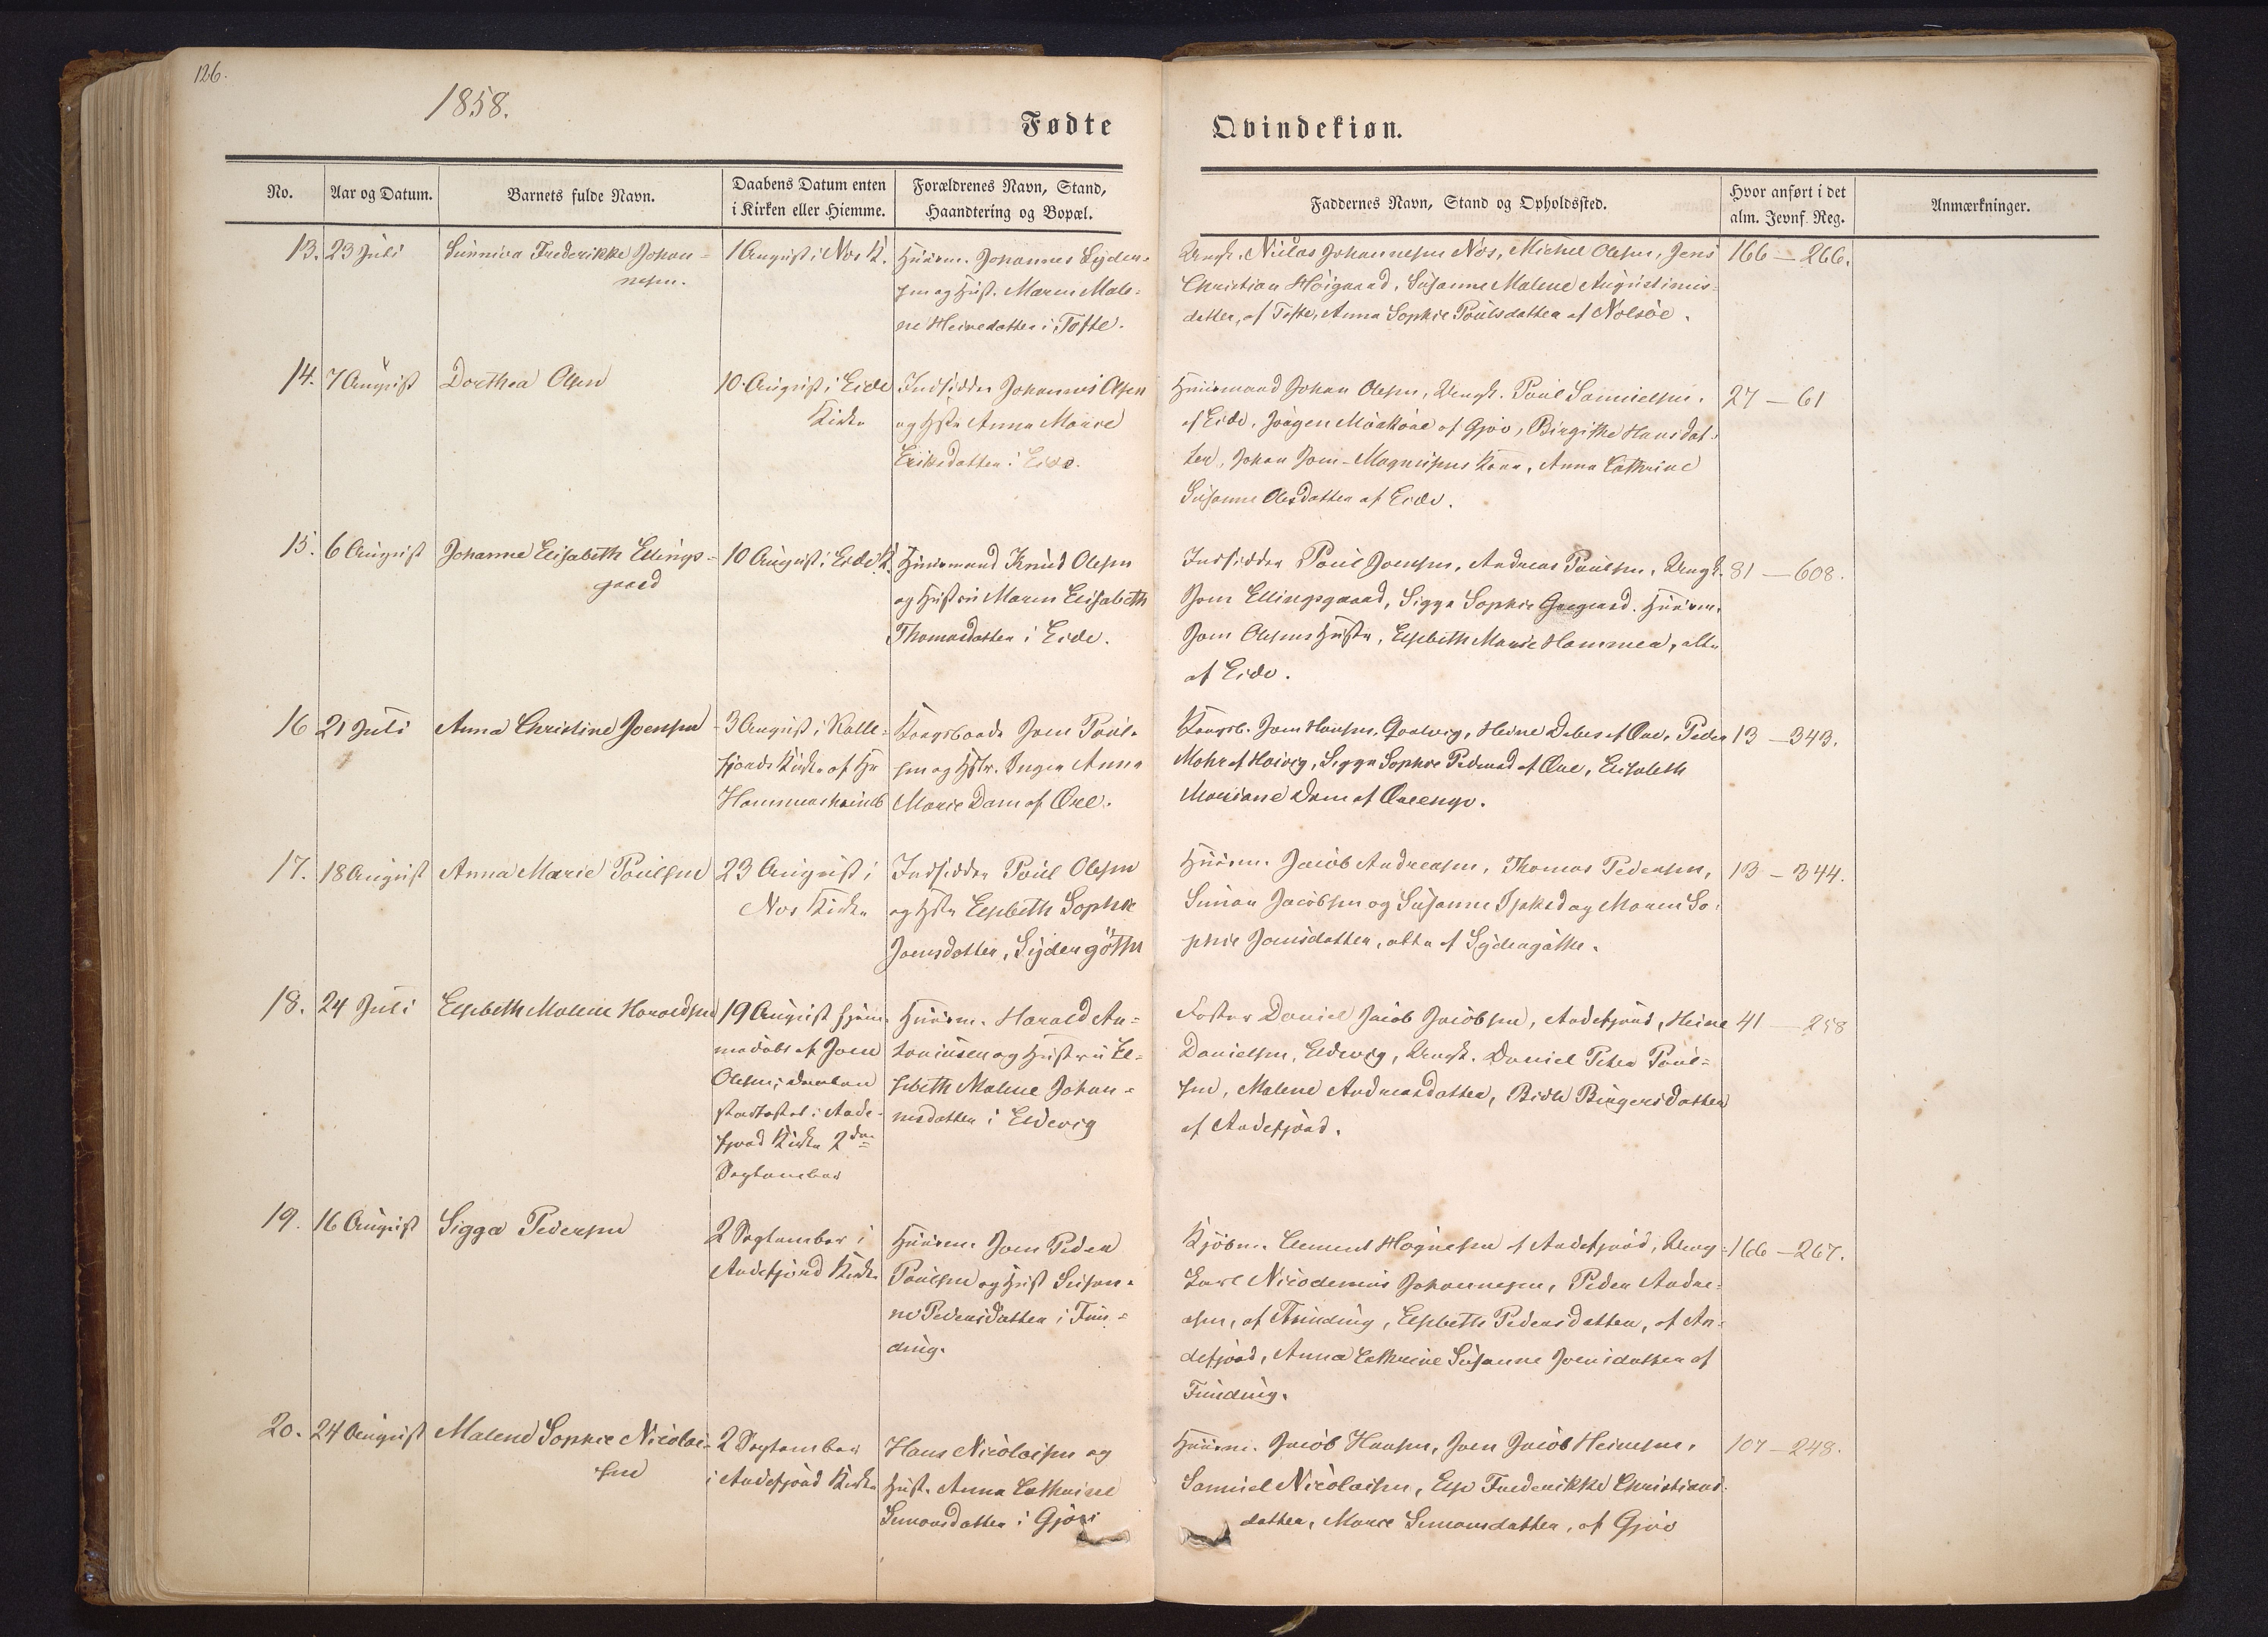 126.
1858.
Fødte
Qvindekiøn.
No.
Aar og Datum.
Barnets fulde Navn.
Daabens Datum enten
i Kirken eller Hiemme.
Forældrenes Navn, Stand,
Haandtering og Bopæl.
Faddernes Navn, Stand og Opholdssted.
Hvor anført i det
alm. Jevnf. Reg.
Anmærkninger.
13. 23 Juli
Sunniva Frederikke Johan=
nesen.
1 August i Nes K.
Huusm. Johannes Ejden-
sen og Hust. Maren Male-
ne Heinedatter i Tofte.
Ungk. Niclas Johannesen Nes, Michel Olesen, Jens
Christian Höigaard, Susanne Malene Augustinus=
datter, af Tofte, Anna Sophie Poulsdatter af Nolsöe.
166 — 266.
14. 7 August
Dorthea Olsen
10. August i Eide
Kirke
Indsidder Johannes Olsen
og Hstr Anna Marie
Eriksdatter i Eide.
Huusmand Johan Olesen, Ungk. Poul Samuelsen,
af Eide, af Gjov, Birgithe Hansdat-
ter, Johan Joen Magnussens Kone, Anna Cathrine
Susanne Olesdatter af Eide.
27 — 61
15. 6 August
Johanne Elisabeth Ellings=
gaard
10 August i Eide K.
Huusmand Knud Olesen
og Hustru Maren Elisabeth
Thomasdatter i Eide.
Indsidder Poul Joensen, Andreas Poulsen, Ungk.
Joen Ellingsgaard, Sigga Sophie Huusm.
Joen Olesens Hustr, Elsebeth Marie Hammer, alle
af Eide.
81 — 608.
16 21 Juli
Anna Christine Joensen
3 August i Kolle=
fjords Kirke af Hr
Hammershaimb
Kongsbonde Joen Poul-
sen og Hstr. Inger Anna
Marie Dam af Öre.
Kongsb. Joen Hansen, Qvalvig, Heine Debes af Öre, Peder
Mohr af Hoivig, Sigga Sophie Pedersd af Öre,
Mariane Dam af
13 — 343.
17. 18 August
Anna Marie Poulsen
23 August i
Nes Kirke
Indsidder Poul Olesen
og Hstr Elsebeth Sophie
Joensdatter, Sydergöthe
Huusm. Jacob Andreasen, Thomas Pedersen,
Simon Jacobsen og Susanne Isaksd og Maren So-
phie Joensdatter, alle af Sydergöthe.
13 — 344.
18. 24 Juli
Elsebeth Malene Haraldsen
19 August hjem=
medøbt af Joen
Olesen; Daaben
stadfæstet i Ande=
fjord Kirke 2den
September
Huusm. Harald An=
toniusen og Hustru El=
sebeth Malene Johan=
nesdatter i Eldevig
Daniel Jacob Jacobsen, Andefjord, Heine
Danielsen, Eldevig, Ungk. Daniel Peter Poul=
sen, Malene Andreasdatter, Birgersdatter
af Andefjord.
41 — 258
19. 16 August
Sigga Pedersen
2 September i
Andefjord Kirke
Huusm. Joen Peder
Poulsen og Hust Susan-
ne Pedersdatter i Fun=
ding.
Kjöbm. Clement Högnesen af Andefjord, Ung-
Karl Nicodemus Johannesen, Peder Andre-
asen, af Funding, Elsebeth Pedersdatter, af An-
defjord, Anna Cathrine Susanne Joensdatter af
Funding.
166 — 267.
20. 24 August
Malene Sophie Nicolai-
sen
2 September
i Andefjord Kirke
Hans Nicolaisen og
Hust. Anna Cathrine
Simonsdatter i Gjov
Huusm. Jacob Hansen, Joen Jacob Heinesen,
Samuel Nicolaisen, Else Frederikke Christians-
datter, Marie Simonsdatter, af Gjov
107 — 248.